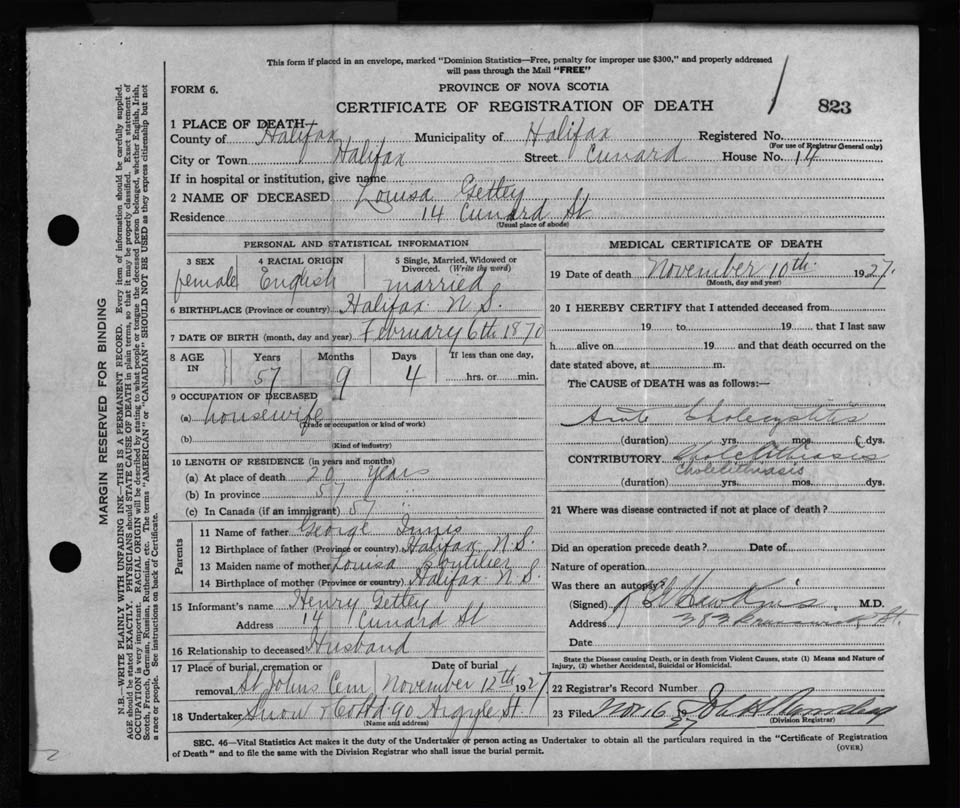 This form if placed in an envelope, marked "Dominion Statistics—Free, penalty for improper use $300," and properly addressed
will pass through the Mail "FREE"
FORM 6.
PROVINCE OF NOVA SCOTIA
CERTIFICATE OF REGISTRATION OF DEATH
823
1 PLACE OF DEATH—
County of Halifax Municipality of Halifax Registered No.
(For use of Registrar General only)
City or Town Halifax Street Cunard House No. 14
If in hospital or institution, give name
2 NAME OF DECEASED Louisa Gettey
Residence 14 Cunard St
(Usual place of abode)
PERSONAL AND STATISTICAL INFORMATION
3 SEX 4 RACIAL ORIGIN 5 Single, Married, Widowed or Divorced. (Write the word)
female English married
6 BIRTHPLACE (Province or country) Halifax N.S.
7 DATE OF BIRTH (month, day and year) February 6th 1870
8 AGE IN Years Months Days If less than one day,
57 9 4 hrs. or min.
9 OCCUPATION OF DECEASED
(a) housewife
(Trade or occupation or kind of work)
(b)
(Kind of industry)
10 LENGTH OF RESIDENCE (in years and months)
(a) At place of death 20 years
(b) In province 57 "
(c) In Canada (if an immigrant) 57 "
Parents
11 Name of father George Innis
12 Birthplace of father (Province or country) Halifax N.S.
13 Maiden name of mother Louisa Boutilier
14 Birthplace of mother (Province or country) Halifax N.S.
15 Informant's name Henry Gettey
Address 14 Cunard St
16 Relationship to deceased Husband
17 Place of burial, cremation or removal Date of burial
St Johns Cem November 12th 1927
18 Undertaker Snow & Co Ltd 90 Argyle St.
(Name and address)
MEDICAL CERTIFICATE OF DEATH
19 Date of death November 10th 1927.
(Month, day and year)
20 I HEREBY CERTIFY that I attended deceased from
19 to 19 that I last saw
h alive on 19 and that death occurred on the
date stated above, at m.
The CAUSE of DEATH was as follows:—
Cholecystitis
(duration) yrs. mos. dys.
CONTRIBUTORY Cholelithiasis
Cholelithiasis
(duration) yrs. mos. dys.
21 Where was disease contracted if not at place of death?
Did an operation precede death? Date of
Nature of operation
Was there an autopsy?
(Signed) Hawkins M.D.
Address 383 Brunswick St.
Date
State the Disease causing Death, or in death from Violent Causes, state (1) Means and Nature of
Injury, (2) whether Accidental, Suicidal or Homicidal.
22 Registrar's Record Number
23 Filed Nov. 16 27
(Division Registrar)
SEC. 46—Vital Statistics Act makes it the duty of the Undertaker or person acting as Undertaker to obtain all the particulars required in the "Certificate of Registration
of Death" and to file the same with the Division Registrar who shall issue the burial permit.
(OVER)
MARGIN RESERVED FOR BINDING
N.B.—WRITE PLAINLY WITH UNFADING INK—THIS IS A PERMANENT RECORD. Every item of information should be carefully supplied.
AGE should be stated EXACTLY. PHYSICIANS should STATE CAUSE OF DEATH in plain terms, so that it may be properly classified. Exact statement of
OCCUPATION is very important. RACIAL ORIGIN will be described by stating to what people or tongue the deceased person belonged, whether English, Irish,
Scotch, French, German, Russian, Ruthenian, etc. The terms "AMERICAN" or "CANADIAN" SHOULD NOT BE USED as they express citizenship but not
a race or people. See instructions on back of Certificate.